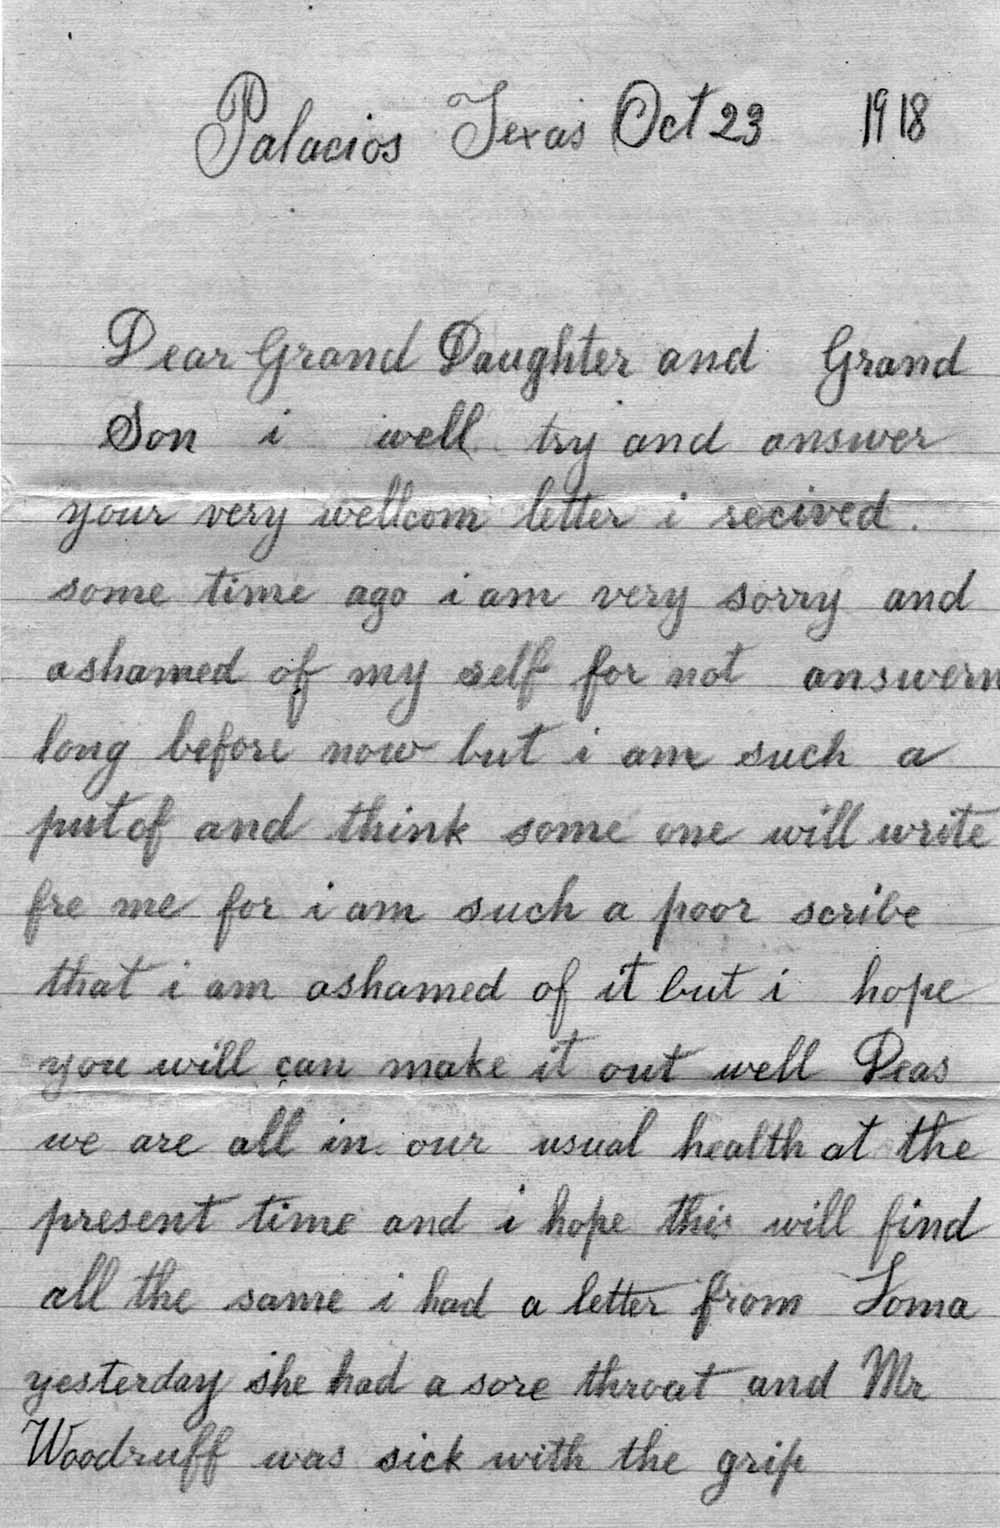 Palacios Texas Oct 23 1918
Dear Grand Daughter and Grand
Son i well try and answer
your very wellcom letter i recived.
some time ago i am very sorry and
ashamed of my self for not answern
long before now but i am such a
put of and think some one will write
fre me for i am such a poor scribe
that i am ashamed of it but i hope
you will can make it out well Deas
we are all in our usual health at the
present time and i hope this will find
all the same i had a letter from Loma
yesterday she had a sore throat and Mr
Woodruff was sick with the grip